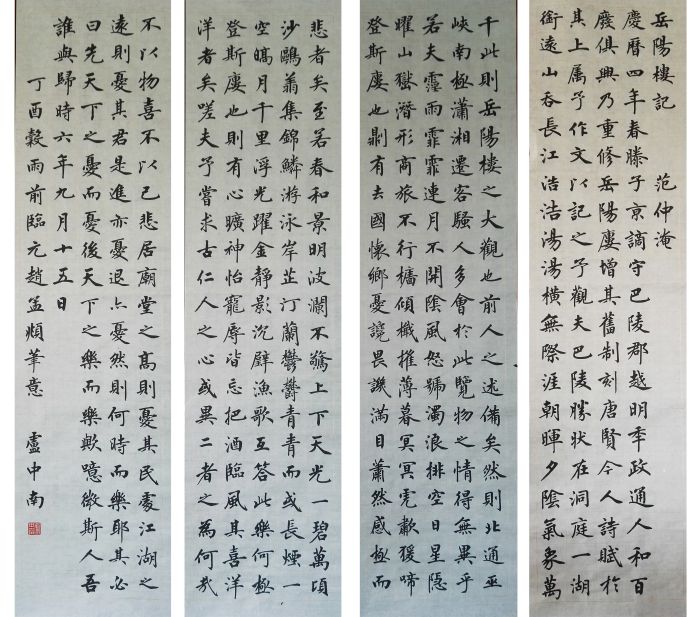 岳陽樓記 范仲淹
慶曆四年春滕子京謫守巴陵郡越明年政通人和百
廢俱興乃重修岳陽廔增其舊制刻唐賢今人詩賦於
其上屬予作文以記之予觀夫巴陵勝狀在洞庭一湖
銜遠山吞長江浩浩湯湯橫無際涯朝暉夕陰氣象萬
千此則岳陽樓之大觀也前人之述備矣然則北通巫
峽南極瀟湘遷客騷人多會於此覽物之情得無異乎
若夫霪雨霏霏連月不開陰風怒號濁浪排空日星隱
曜山嶽潛形商旅不行檣傾檝摧薄暮冥冥虎歗猨啼
登斯廔也則有去國懷鄉憂讒畏譏滿目蕭然感極而
悲者矣至若春和景明波瀾不驚上下天光一碧萬頃
沙鷗翕集錦鱗游泳岸芷汀蘭鬱鬱青青而或長煙一
空皜月千里浮光躍金靜影沉璧漁歌互答此樂何極
登斯廔也則有心曠神怡寵辱皆忘把酒臨風其喜洋
洋者矣嗟夫予嘗求古仁人之心或異二者之為何哉
不以物喜不以己悲居廟堂之高則憂其民處江湖之
遠則憂其君是進亦憂退亦憂然則何時而樂耶其必
曰先天下之憂而憂後天下之樂而樂歟噫微斯人吾
誰與歸時六年九月十五日
丁酉穀雨前臨元趙孟頫筆意 盧中南